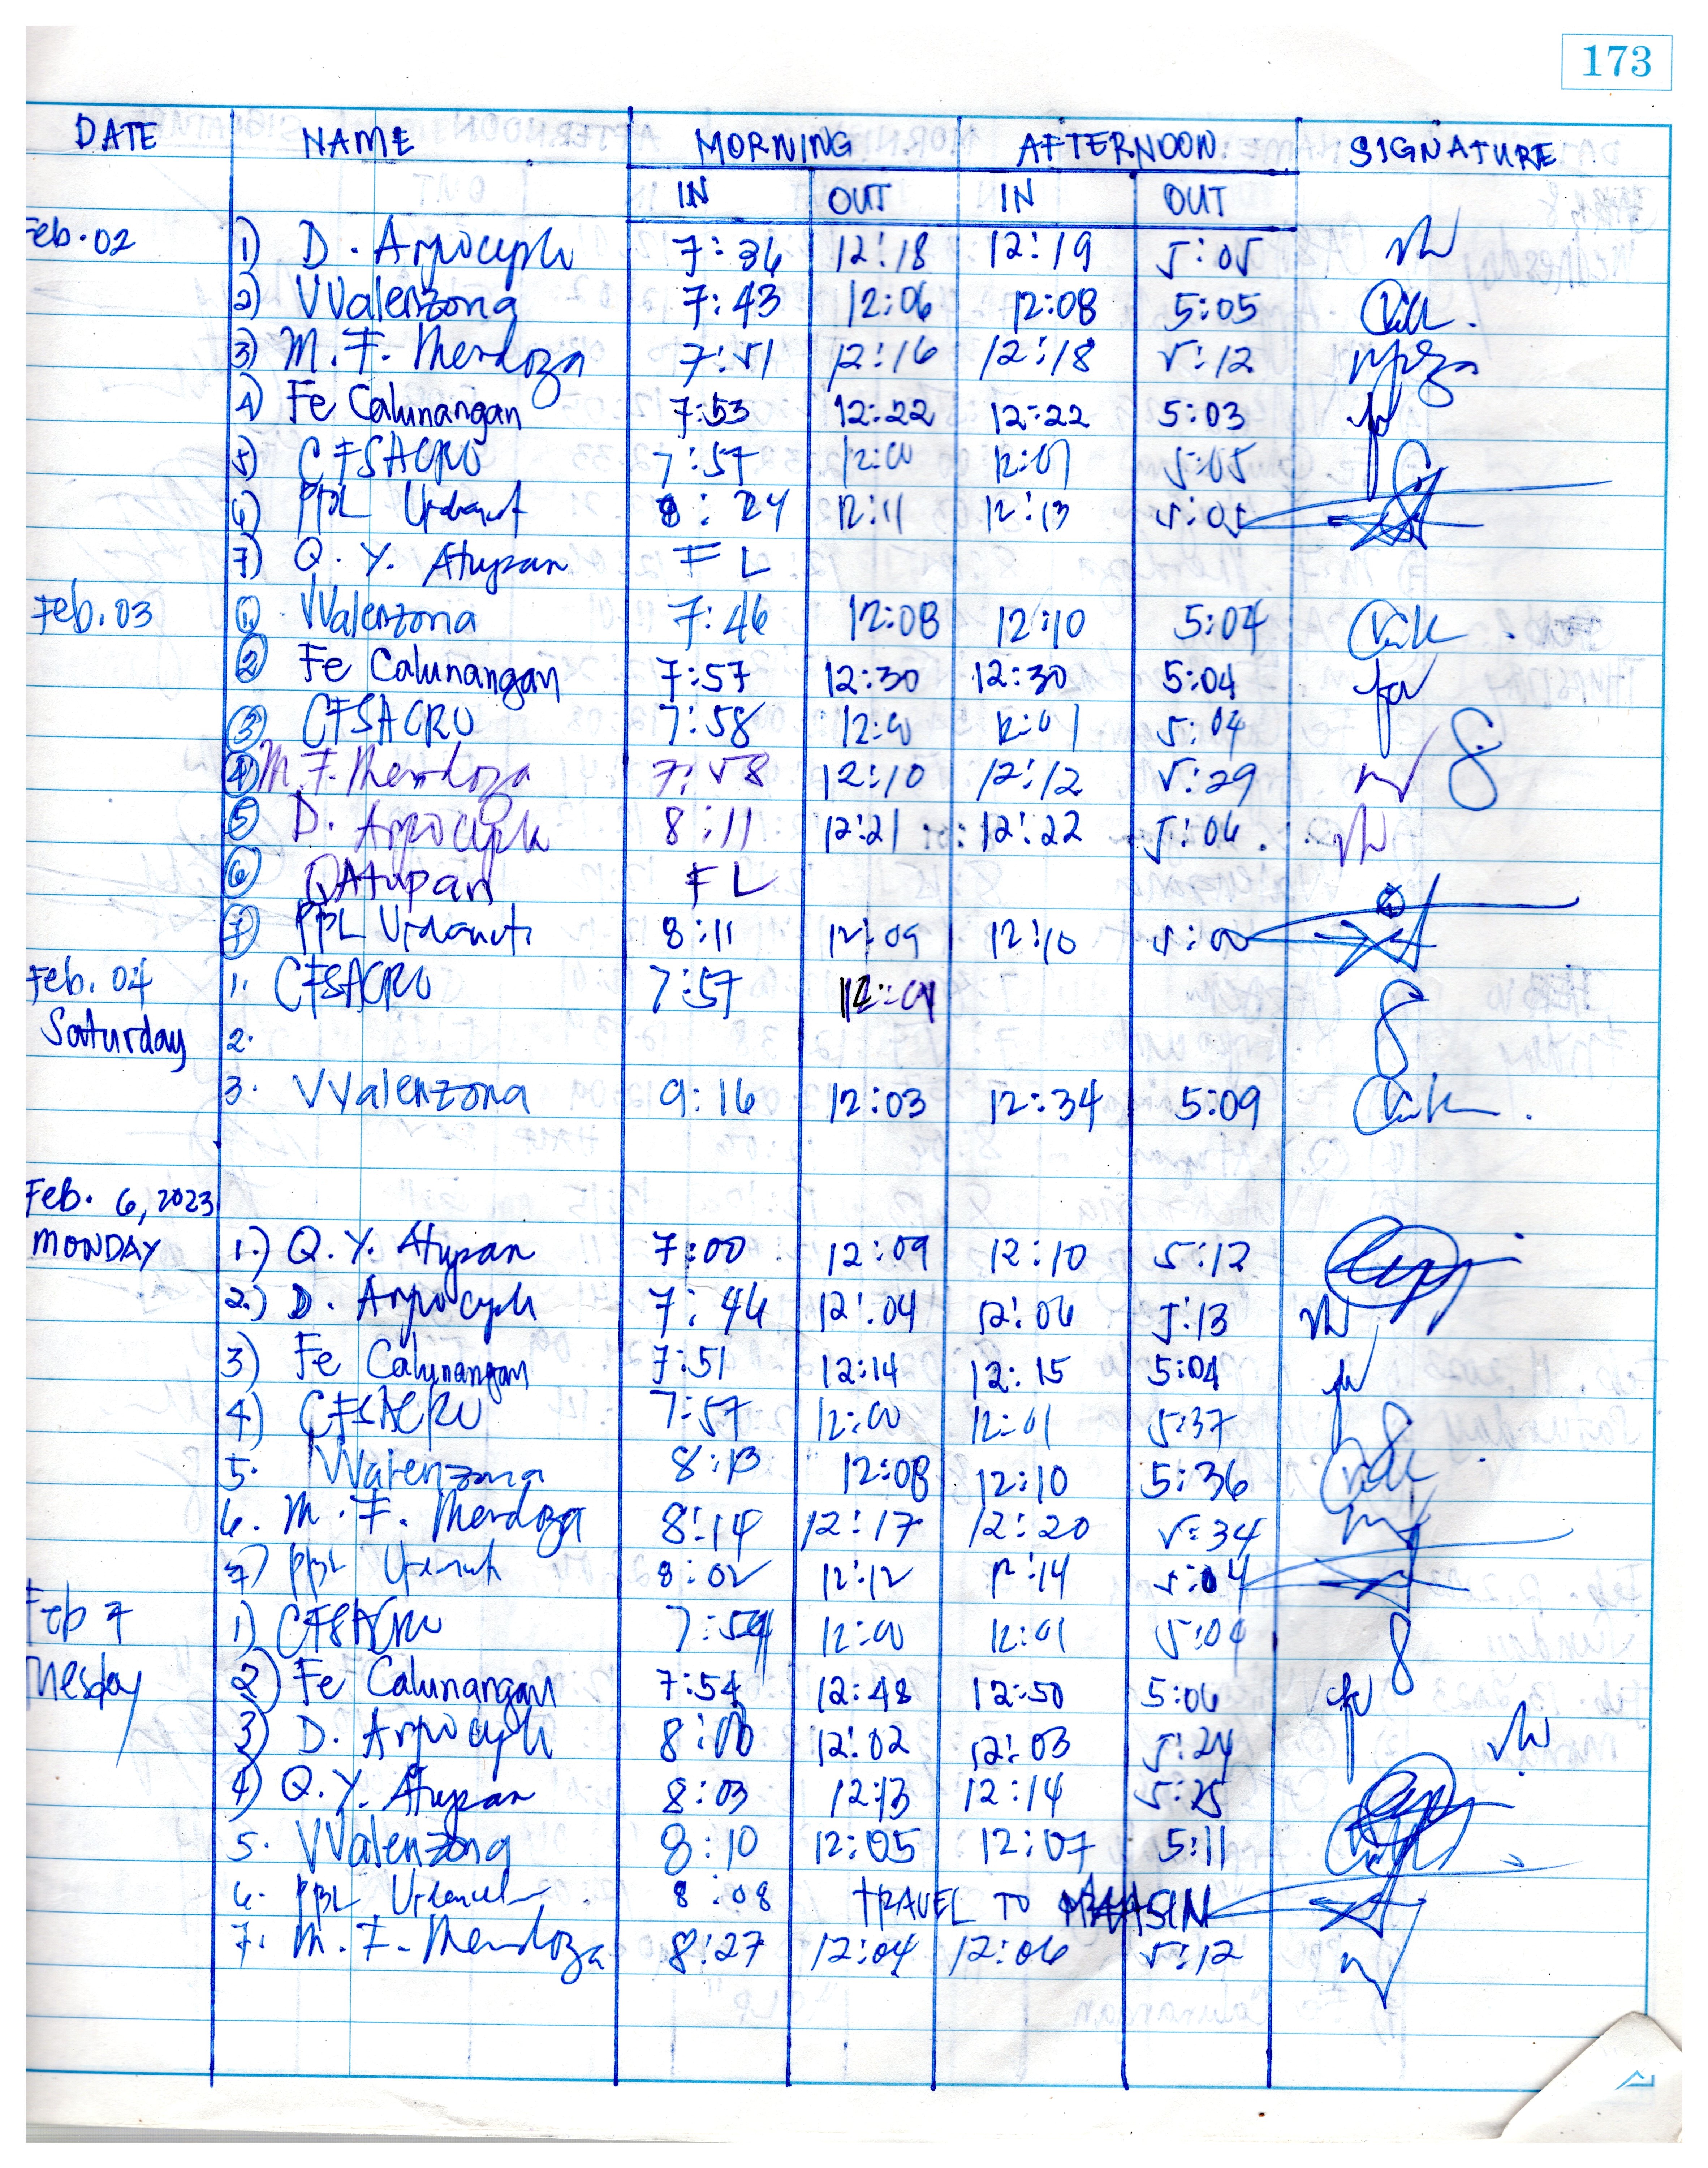 173
DATE NAME MORNING AFTERNOON SIGNATURE
IN OUT IN OUT
Feb. 02 1) D. 7:36 12:18 12:19 5:05
2) VValenzona 7:43 12:06 12:08 5:05
3) M. F. Mendoza 7:51 12:16 12:18 5:12
4) Fe Calunangan 7:53 12:22 12:22 5:03
5) CFSACRO 7:57 12:00 12:01 5:05
6) PBL 8:24 12:11 12:13 5:05
7) Q. Y. Atupan FL
Feb. 03 1. VValenzona 7:46 12:08 12:10 5:04
2 Fe Calunangan 7:57 12:30 12:30 5:04
3 CFSACRO 7:58 12:00 12:01 5:04
4 M. F. Mendoza 7:58 12:10 12:12 5:29
5 D. 8:11 12:21 12:22 5:06
6 QAtupan FL
7 PBL 8:11 12:09 12:10 5:00
Feb. 04 1. CFSACRO 7:57 12:01
Saturday 2.
3. VValenzona 9:16 12:03 12:34 5:09
Feb. 6, 2023
MONDAY 1.) Q. Y. Atupan 7:00 12:09 12:10 5:12
2.) D. 7:46 12:04 12:06 5:13
3) Fe Calunangan 7:51 12:14 12:15 5:04
4) CFSACRO 7:57 12:00 12:01 5:37
5. VValenzona 8:13 12:08 12:10 5:36
6. M. F. Mendoza 8:14 12:17 12:20 5:34
7) PBL 8:02 12:12 12:14 5:04
Feb 7 1) CFSACRO 12:00 12:01 5:04
Tuesday 2) Fe Calunangan 7:54 12:48 12:50 5:06
3) D. 8:00 12:02 12:03 5:24
4) Q. Y. Atupan 8:03 12:13 12:14 5:25
5. VValenzona 8:10 12:05 12:07 5:11
6. PBL 8:08 TRAVEL TO MAASIN
7. M. F. Mendoza 8:27 12:04 12:06 5:12